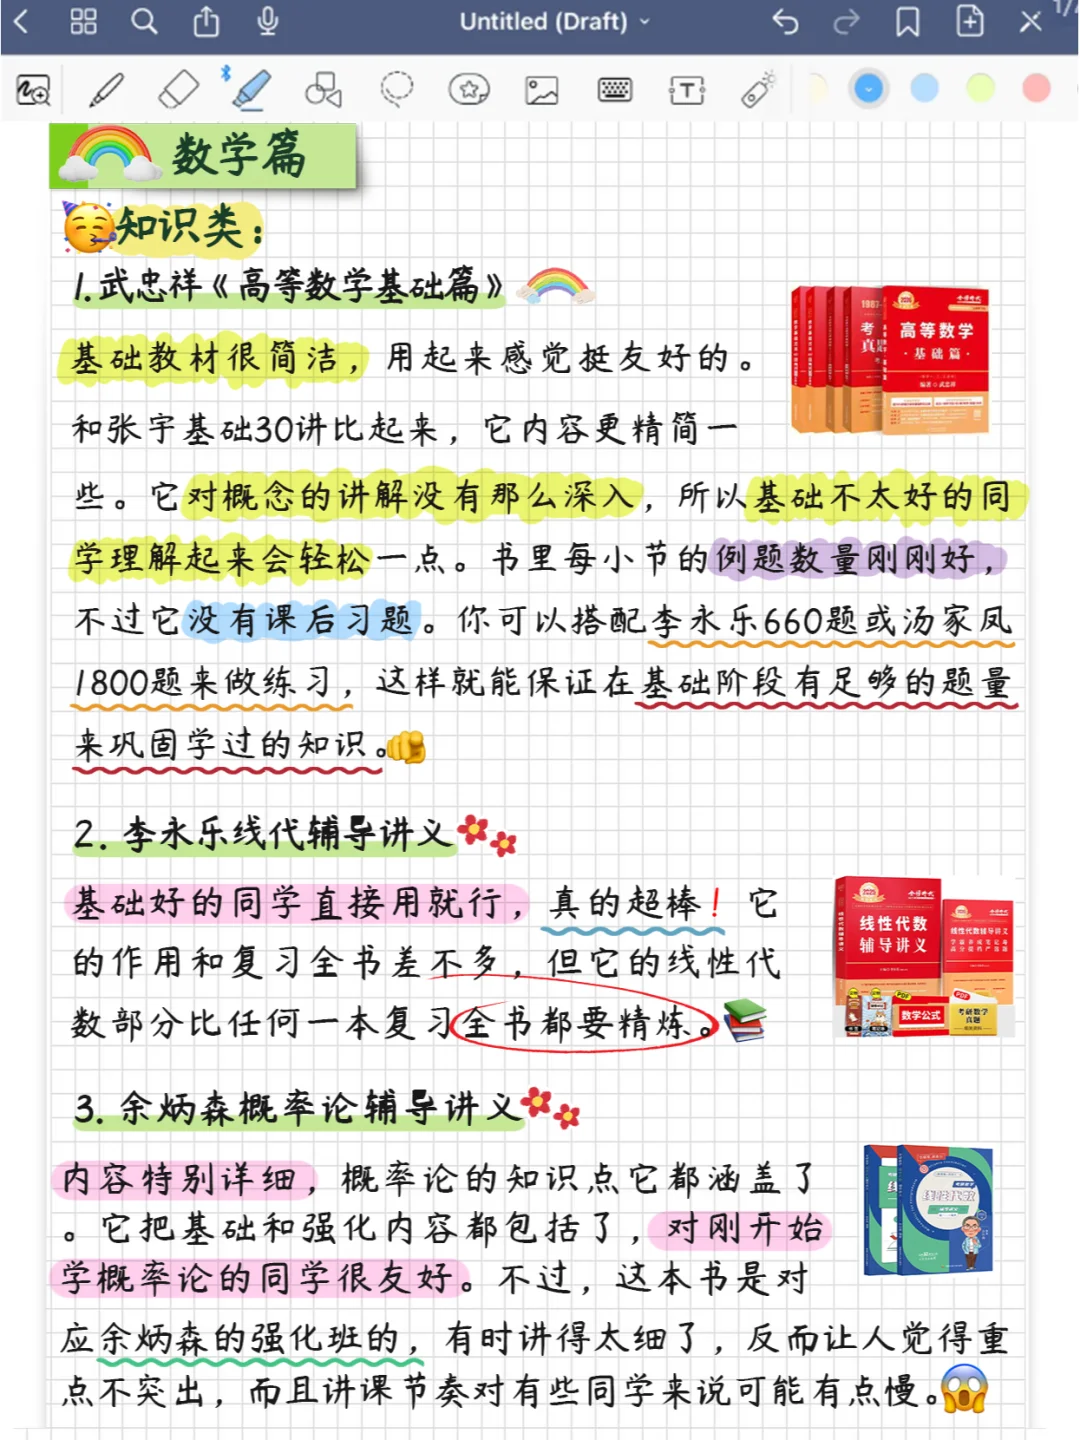 Untitled (Draft)
1/
T
数学篇
知识类：
1.武忠祥《高等数学基础篇》
基础教材很简洁，用起来感觉挺友好的。
和张宇基础30讲比起来，它内容更精简一
些。它对概念的讲解没有那么深入，所以基础不太好的同
学理解起来会轻松一点。书里每小节的例题数量刚刚好，
不过它没有课后习题。你可以搭配李永乐660题或汤家凤
1800题来做练习，这样就能保证在基础阶段有足够的题量
来巩固学过的知识。
高等数学
·基础篇·
2. 李永乐线代辅导讲义
基础好的同学直接用就行，真的超棒！它
的作用和复习全书差不多，但它的线性代
数部分比任何一本复习全书都要精炼。
线性代数
辅导讲义
线性代数辅导讲义
PDF
PDF
数学公式
考研数学
真题
3. 余炳森概率论辅导讲义
内容特别详细，概率论的知识点它都涵盖了
。它把基础和强化内容都包括了，对刚开始
学概率论的同学很友好。不过，这本书是对
应余炳森的强化班的，有时讲得太细了，反而让人觉得重
点不突出，而且讲课节奏对有些同学来说可能有点慢。
线性代数